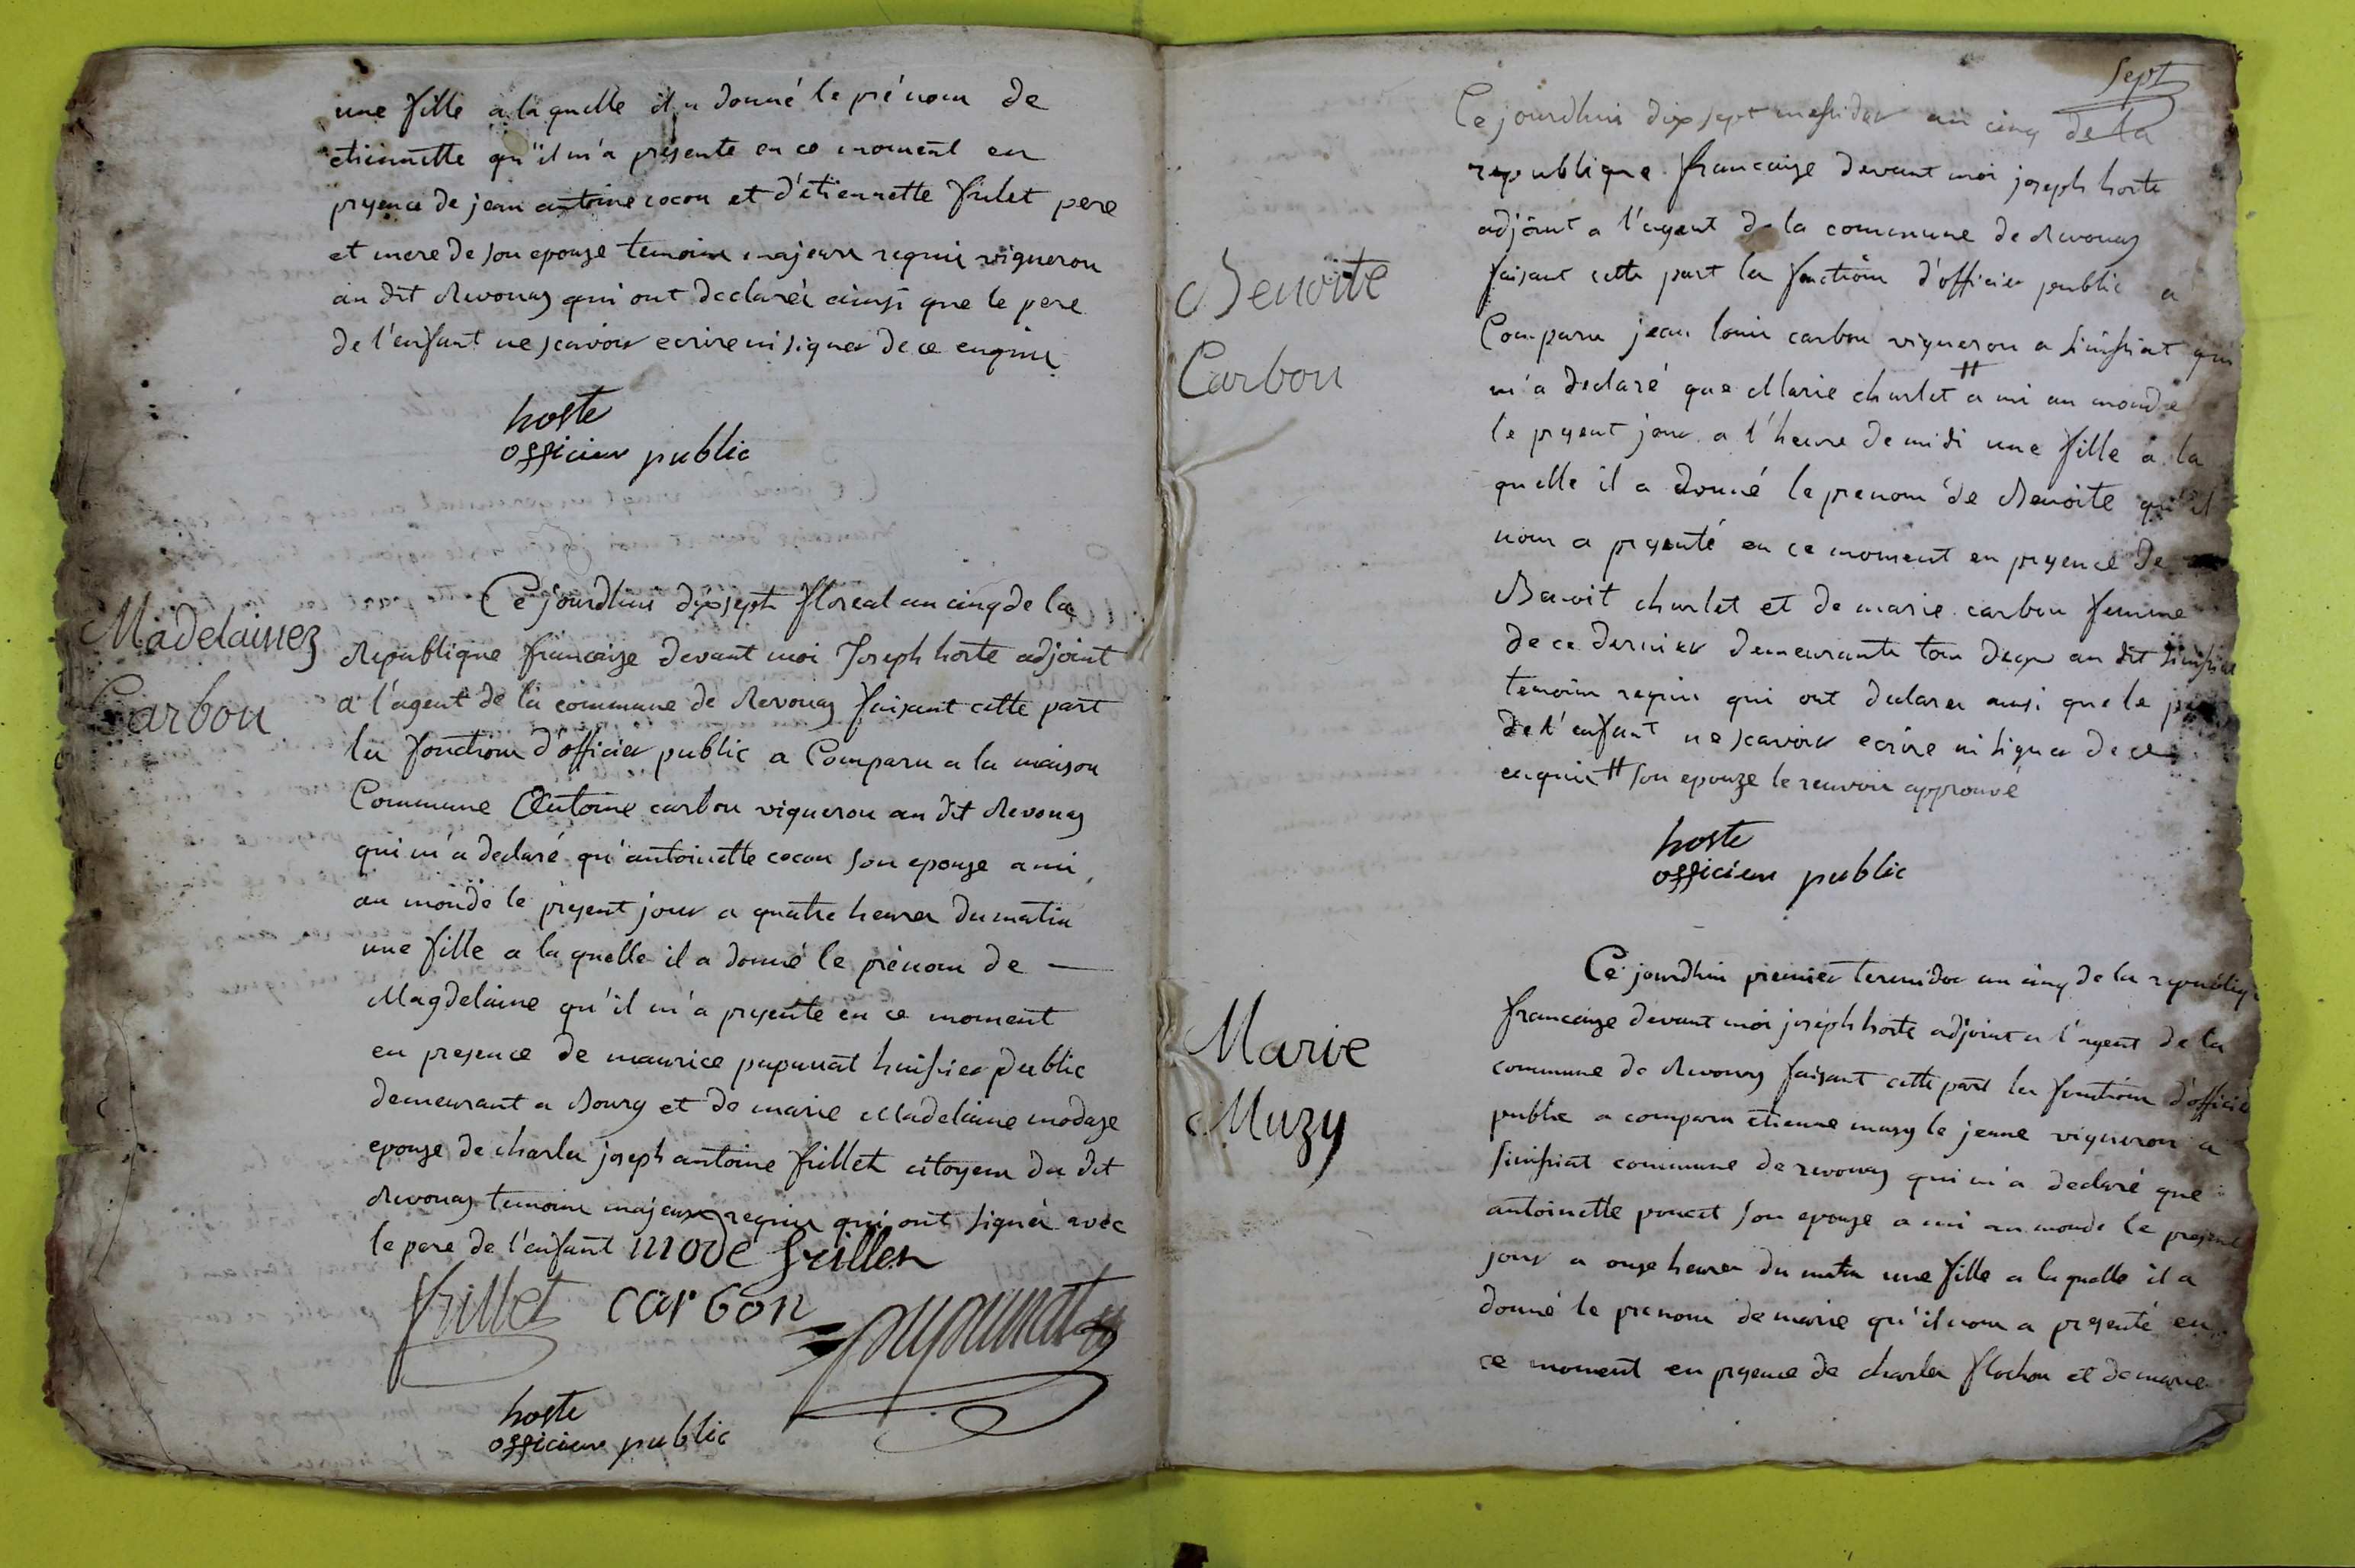 une fille a la quelle il a donné le prénom de
etiennette qu'il m'a presente en ce moment en
presence de jean antoine cocon et d'étiennette frilet pere
et mere de son epouze temoins majeurs requis vigneron
au dit Revonas qui ont declarés ainsi que le pere
de l'enfant ne scavoir ecrire ni signer de ce enquis
hoste
officier public
Madelainez
Carbon
Ce jourdhui dix sept floreal an cinq de la
Republique francaize devant moi Joseph hoste adjoint
a l'agent de la commune de Revonas faisant cette part
les fonctions d'officier public a Comparu a la maison
Commune Antoine carbon vigneron au dit Revonas
qui m'a declaré qu'antoinette cocon son epouze a mis
au monde le present jour a quatre heures du matin
une fille a la quelle il a donné le prénom de
Magdelaine qu'il m'a presente en ce moment
en presence de maurice pupunat huissier public
demeurant a Bourg et de marie Madelaine modaze
epouze de charles joseph antoine frillet citoyens du dit
Revonas temoins majeurs requis qui ont signés avec
le pere de l'enfant mode frillet
frillet carbon pupunat
hoste
officier public
sept
Ce jourdhui dix sept messidor an cinq de la
republique francaize devant moi joseph hoste
adjoint a l'agent de la commune de Revonas
faisant cette part les fonctions d'officier public a
Comparu jean louis carbon vigneron a simissiat qui
m'a declaré que Marie charlet # a mis au monde
le present jour a l'heure de midi une fille a la
quelle il a donné le prenom de Benoite qu'il
nous a presenté en ce moment en presence de
Benoit charlet et de marie carbon femme
de ce dernier demeurants tous deux au dit simissiat
temoins requis qui ont declarés ainsi que le pere
de l'enfant ne scavoir ecrire ni signer de ce
enquis # son epouze le renvoi approuvé
hoste
officier public
Benoite
Carbon
Ce jourdhui premier termidor an cinq de la republiq
francaize devant moi joseph hoste adjoint a l'agent de la
commune de Revonas faisant cette part les fonctions d'officier
public a comparu etienne muzy le jeune vigneron a
simissiat commune de revonas qui m'a declaré que
antoinette poncet son epouze a mis au monde le present
jour a onze heures du matin une fille a la quelle il a
donné le prenom de marie qu'il nous a presenté en
ce moment en presence de charles flochon et de marie
Marie
Muzy